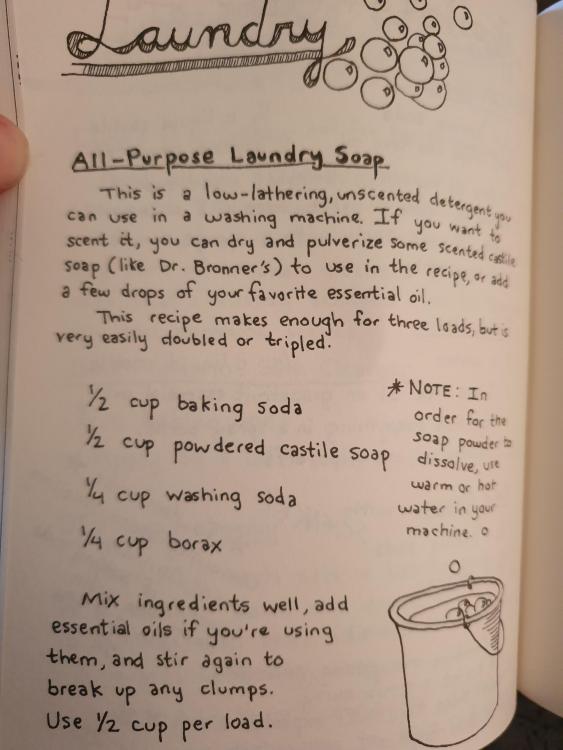 Laundry
All-Purpose Laundry Soap
This is a low-lathering, unscented detergent you
can use in a washing machine. If you want to
scent it, you can dry and pulverize some scented castile
soap (like Dr. Bronner's) to use in the recipe, or add
a few drops of your favorite essential oil.
This recipe makes enough for three loads, but is
very easily doubled or tripled.
1/2 cup baking soda
1/2 cup powdered castile soap
1/4 cup washing soda
1/4 cup borax
* Note: In
order for the
soap powder to
dissolve, use
warm or hot
water in your
machine.
Mix ingredients well, add
essential oils if you're using
them, and stir again to
break up any clumps.
Use 1/2 cup per load.